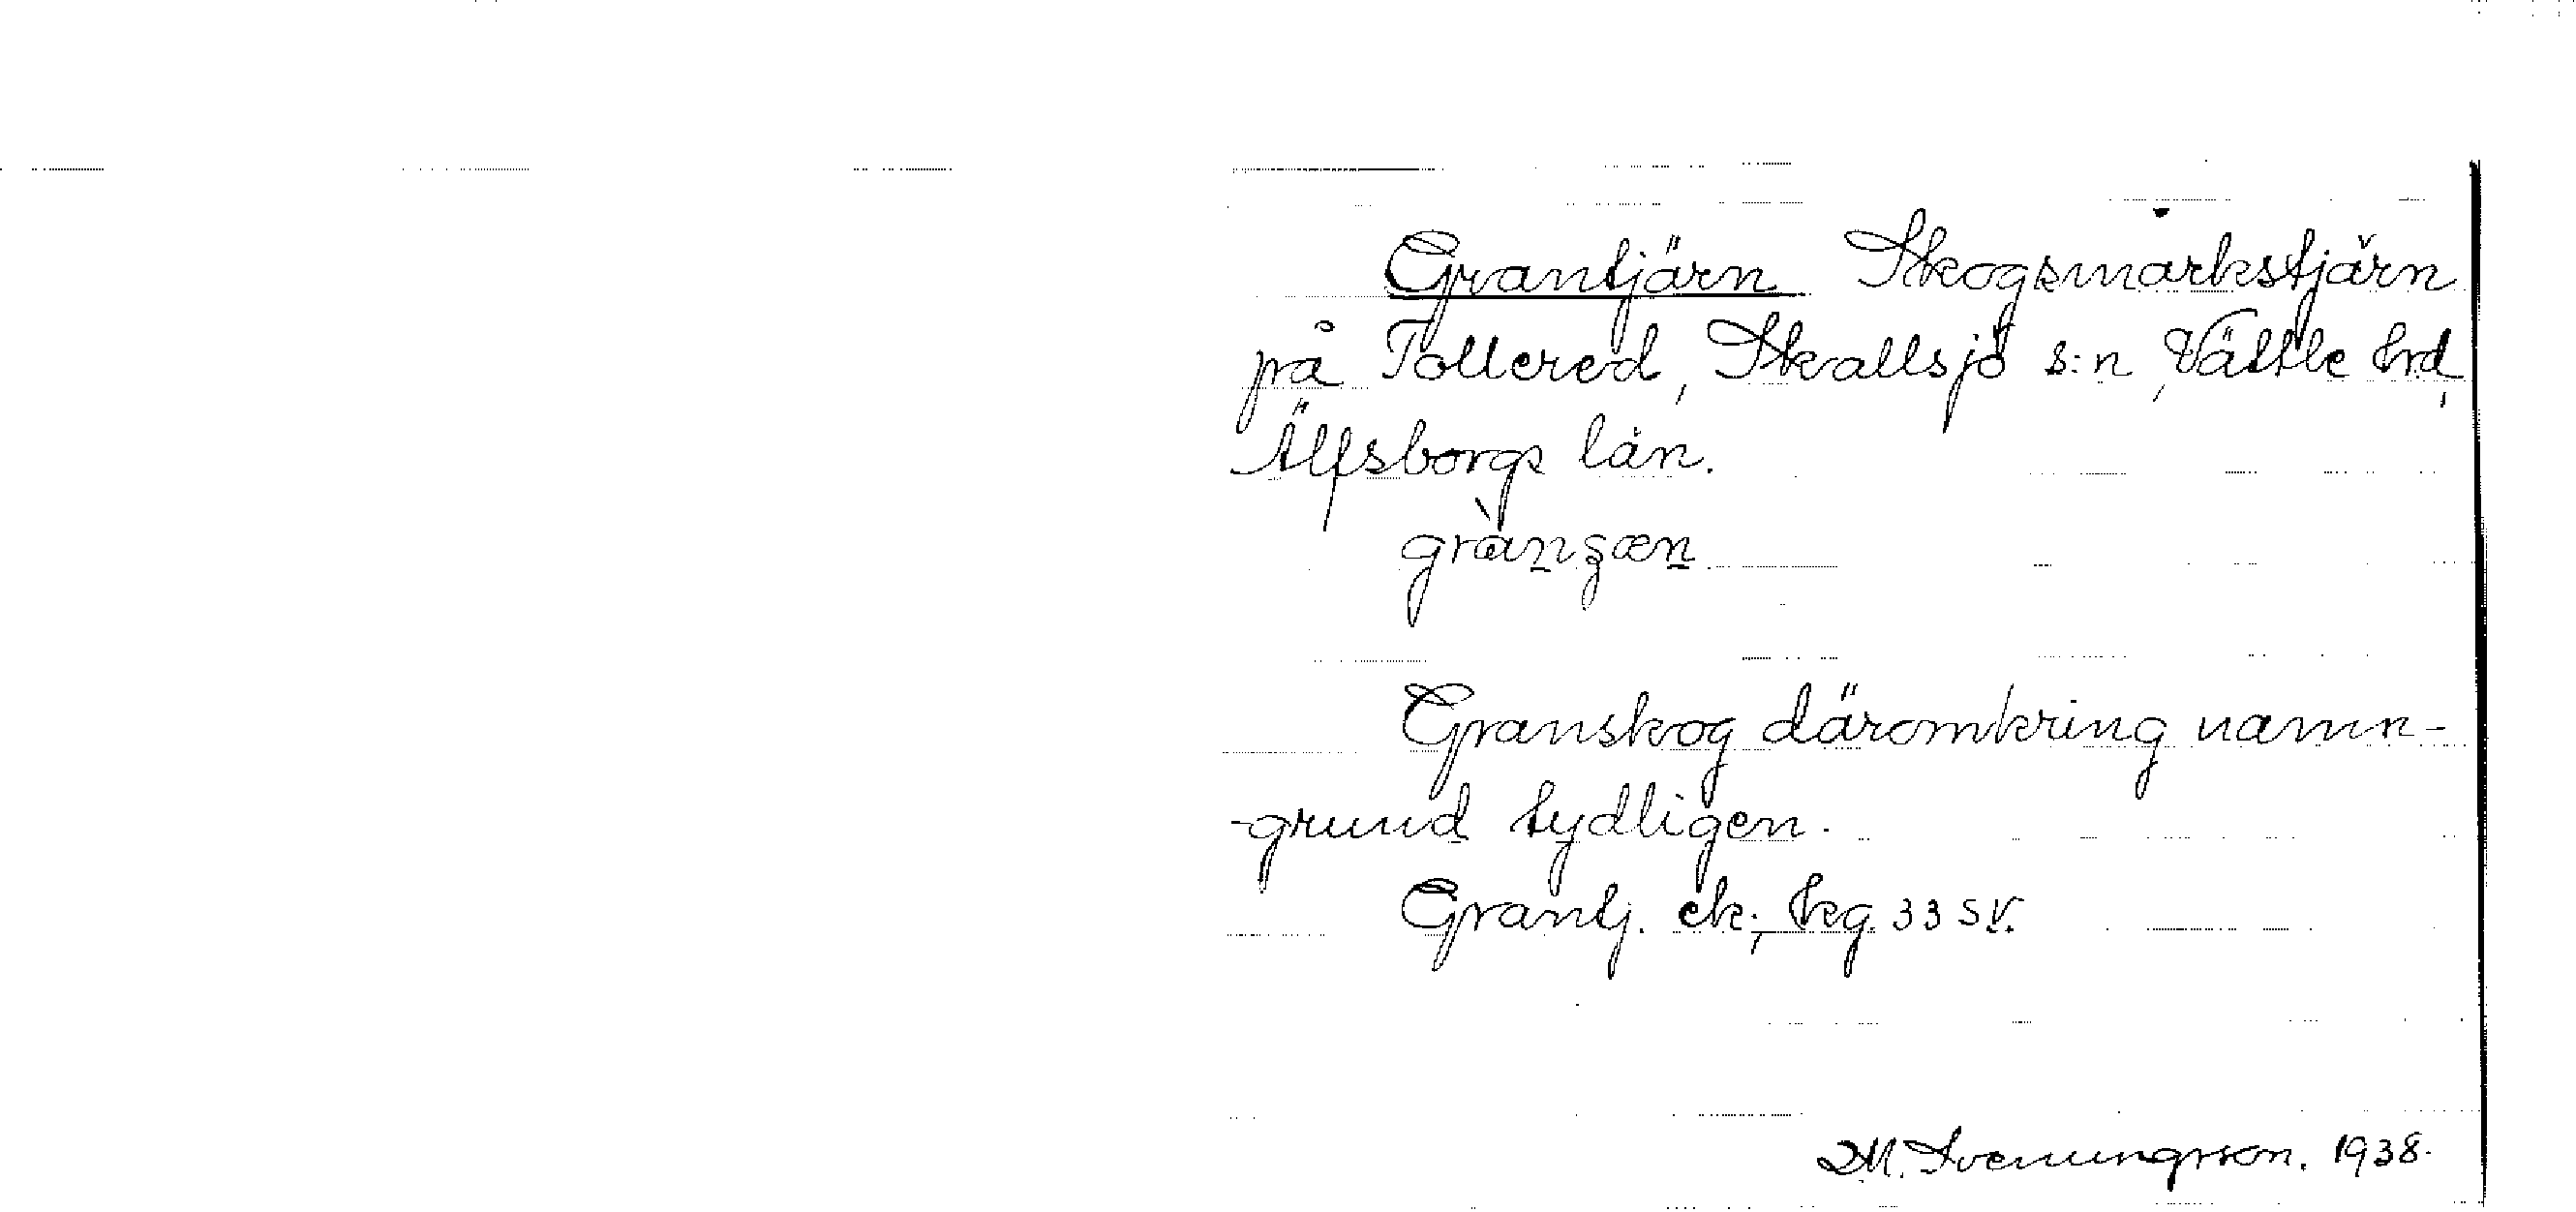 Grantjärn Skogsmarkstjärn
på Tollered, Skallsjö s:n, Vättle hrd,
Älfsborgs län.
grànʒæn
Granskog däromkring namn-
-grund tydligen.
Grantj. ek.; kg. 33 SV.
M. Svenungsson. 1938.